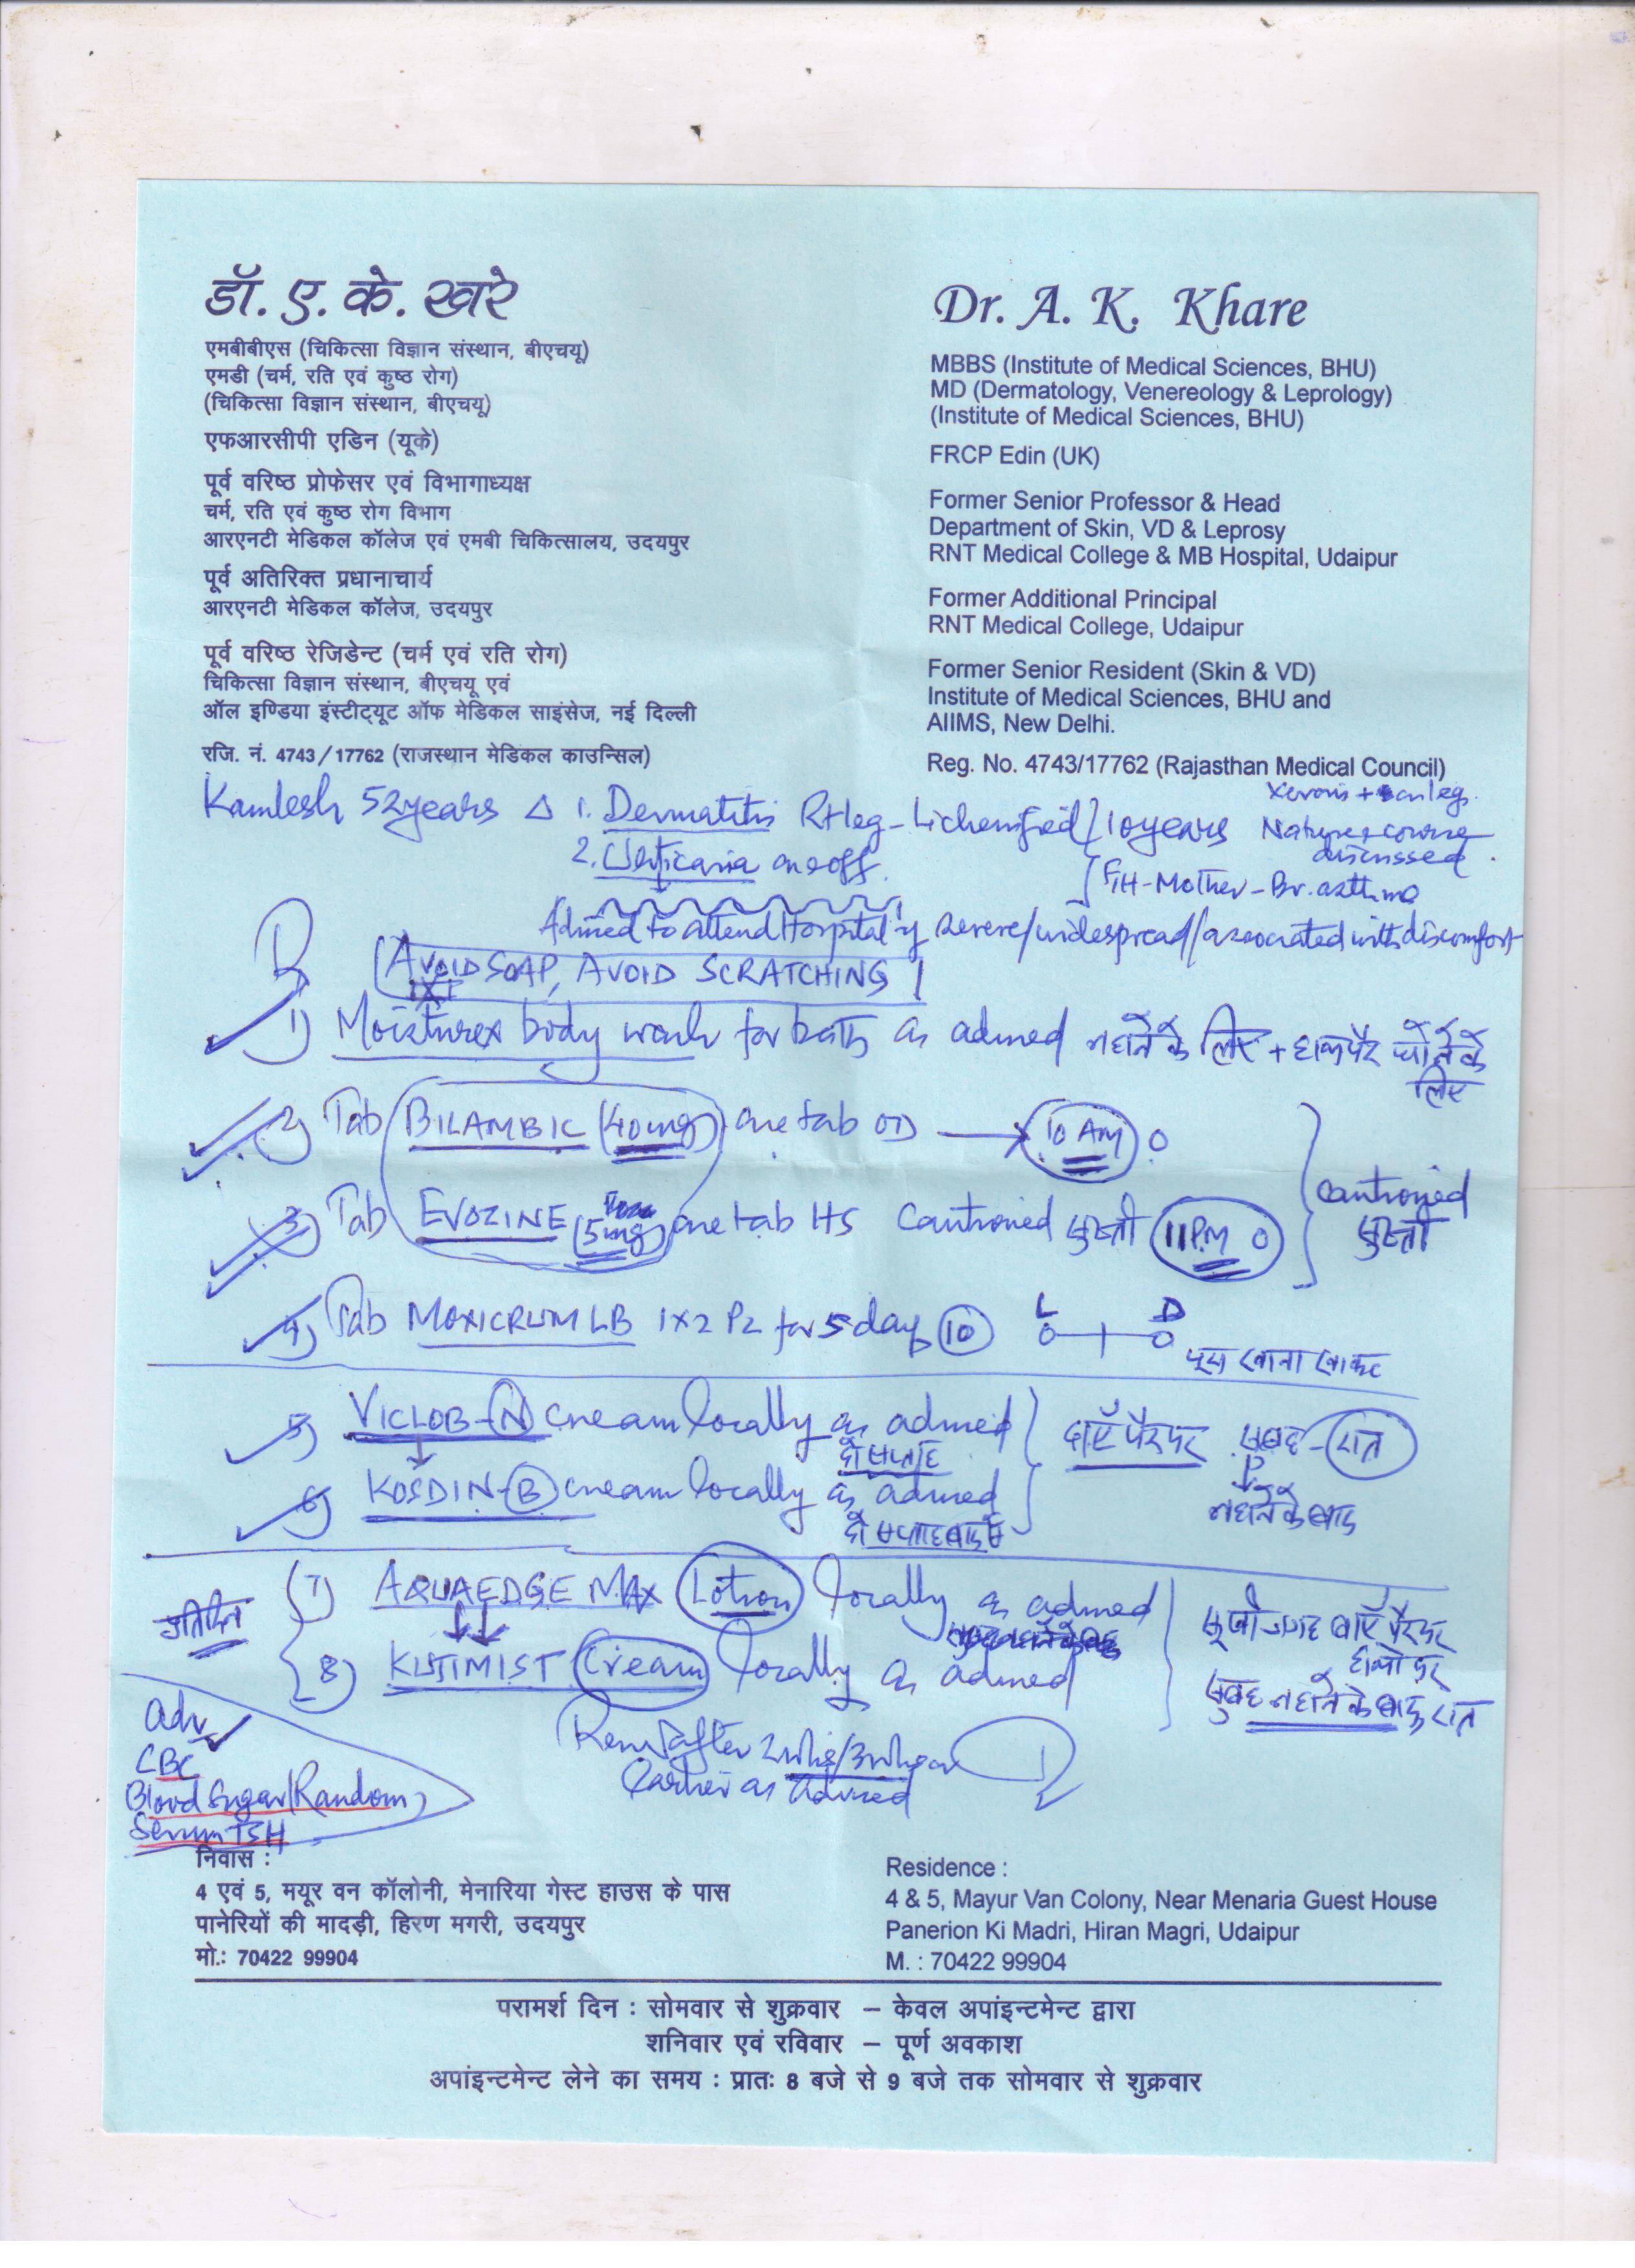 डॉ. ए. के. खरे
एमबीबीएस (चिकित्सा विज्ञान संस्थान, बीएचयू)
एमडी (चर्म, रति एवं कुष्ठ रोग)
(चिकित्सा विज्ञान संस्थान, बीएचयू)
एफआरसीपी एडिन (यूके)
पूर्व वरिष्ठ प्रोफेसर एवं विभागाध्यक्ष
चर्म, रति एवं कुष्ठ रोग विभाग
आरएनटी मेडिकल कॉलेज एवं एमबी चिकित्सालय, उदयपुर
पूर्व अतिरिक्त प्रधानाचार्य
आरएनटी मेडिकल कॉलेज, उदयपुर
पूर्व वरिष्ठ रेजिडेन्ट (चर्म एवं रति रोग)
चिकित्सा विज्ञान संस्थान, बीएचयू एवं
ऑल इण्डिया इंस्टीट्यूट ऑफ मेडिकल साइंसेज, नई दिल्ली
रजि. नं. 4743/17762 (राजस्थान मेडिकल काउन्सिल)
Dr. A. K. Khare
MBBS (Institute of Medical Sciences, BHU)
MD (Dermatology, Venereology & Leprology)
(Institute of Medical Sciences, BHU)
FRCP Edin (UK)
Former Senior Professor & Head
Department of Skin, VD & Leprosy
RNT Medical College & MB Hospital, Udaipur
Former Additional Principal
RNT Medical College, Udaipur
Former Senior Resident (Skin & VD)
Institute of Medical Sciences, BHU and
AIIMS, New Delhi.
Reg. No. 4743/17762 (Rajasthan Medical Council)
Xerosis + on legs
Kamlesh 52years Δ 1. Dermatitis Rt leg - Lichenified / 10years Nature & course
discussed
2. Urticaria on & off.
F/H - Mother - Br. asthma
Advised to attend Hospital if severe/widespread/associated with discomfort
AVOID SOAP, AVOID SCRATCHING
1) Moisturex body wash for bath as advised नहाने के लिए + हाथ पैर धोने के
लिए
2) Tab BILAMBIC (40mg) one tab OD → 10 AM
3) Tab EVOZINE (5mg) one tab HS Cautioned सुस्ती 11PM
Cautioned
सुस्ती
4) Tab MOXICRUM LB 1x2 PL for 5 days 10 L D
खाना खाकर
5) VICLOB-N cream locally as advised दाएँ पैर पर सुबह - रात
दो सप्ताह
6) KOSDIN-B cream locally as advised नहाने के बाद
दो सप्ताह बाद से
7) AQUAEDGE MAX Lotion locally as advised सूखी जगह बाएँ पैर पर
हाथों पर
प्रतिदिन
8) KUTIMIST Cream locally as advised सुबह नहाने के बाद, रात
Adv
CBC
Blood Sugar (Random)
Serum TSH
Renew after 2wks/3wks or
Earlier as advised
निवास :
4 एवं 5, मयूर वन कॉलोनी, मेनारिया गेस्ट हाउस के पास
पानेरियों की मादड़ी, हिरण मगरी, उदयपुर
मो.: 70422 99904
Residence :
4 & 5, Mayur Van Colony, Near Menaria Guest House
Panerion Ki Madri, Hiran Magri, Udaipur
M. : 70422 99904
परामर्श दिन : सोमवार से शुक्रवार – केवल अपांइन्टमेन्ट द्वारा
शनिवार एवं रविवार – पूर्ण अवकाश
अपांइन्टमेन्ट लेने का समय : प्रातः 8 बजे से 9 बजे तक सोमवार से शुक्रवार